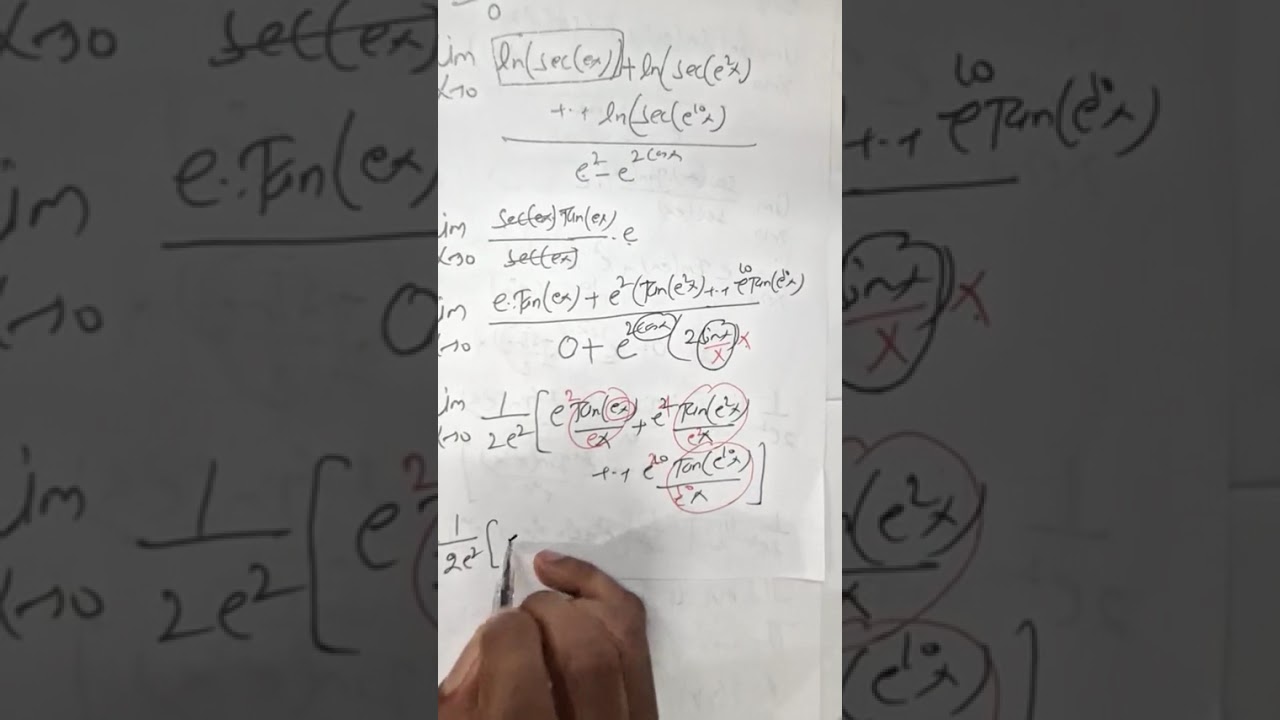 0
lim x→0 ln(sec(ex)) + ln(sec(e²x)
+..+ ln(sec(e¹⁰x)
e² - e^(2cosx)
lim x→0 sec(ex) Tan(ex) / sec(ex) . e
lim x→0 e.Tan(ex) + e²(Tan(e²x) +..+ e¹⁰Tan(e¹⁰x)
0 + e^(2cosx) (2 sinx/x) x
lim x→0 1/2e² [ e² Tan(ex)/ex + e⁴ Tan(e²x)/e²x
+..+ e²⁰ Tan(e¹⁰x)/e¹⁰x ]
1/2e² [